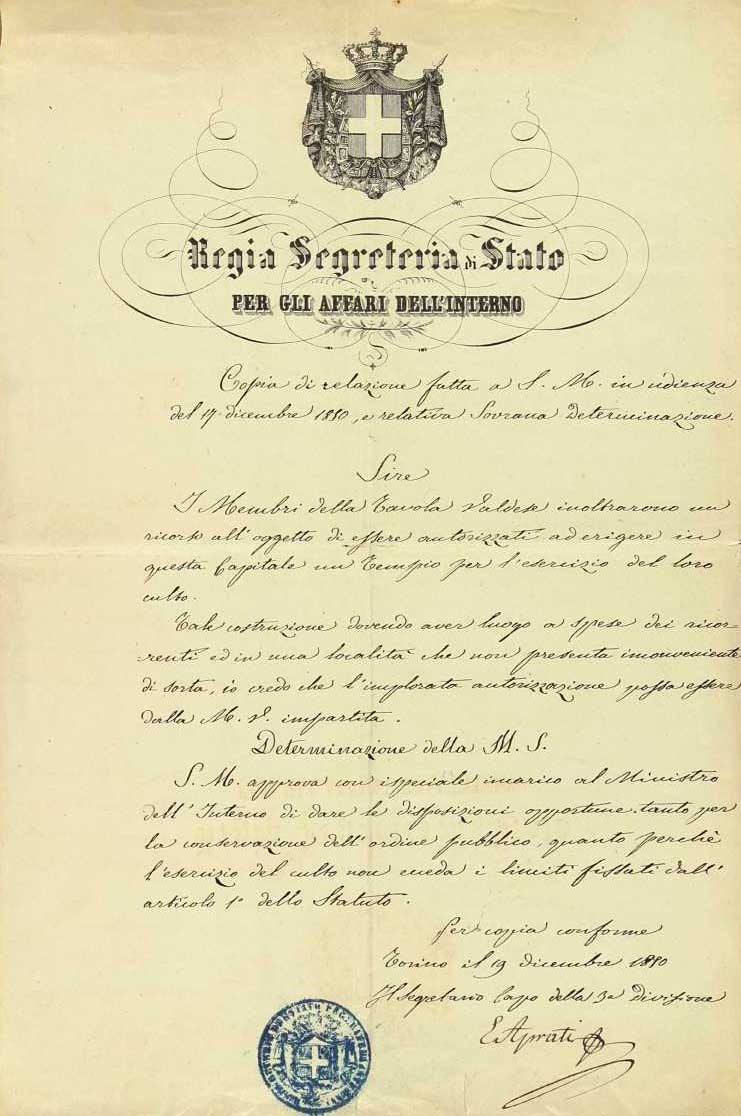 Regia Segreteria di Stato
PER GLI AFFARI DELL'INTERNO
Copia di relazione fatta a S. M. in udienza
del 17 dicembre 1850, e relativa Sovrana Determinazione.
Sire
I Membri della Tavola Valdese inoltrarono un
ricorso all'oggetto di essere autorizzati ad erigere in
questa Capitale un Tempio per l'esercizio del loro
culto.
Tale costruzione dovendo aver luogo a spese dei ricor-
-renti ed in una località che non presenta inconveniente
di sorta, io credo che l'implorata autorizzazione possa essere
dalla M. V. impartita.
Determinazione della M. S.
S. M. approva con ispeciale incarico al Ministro
dell'Interno di dare le disposizioni opportune tanto per
la conservazione dell'ordine pubblico, quanto perchè
l'esercizio del culto non ecceda i limiti fissati dall'
articolo 1° dello Statuto.
Per copia conforme
Torino il 19 dicembre 1850
Il Segretario Capo della 3a Divisione